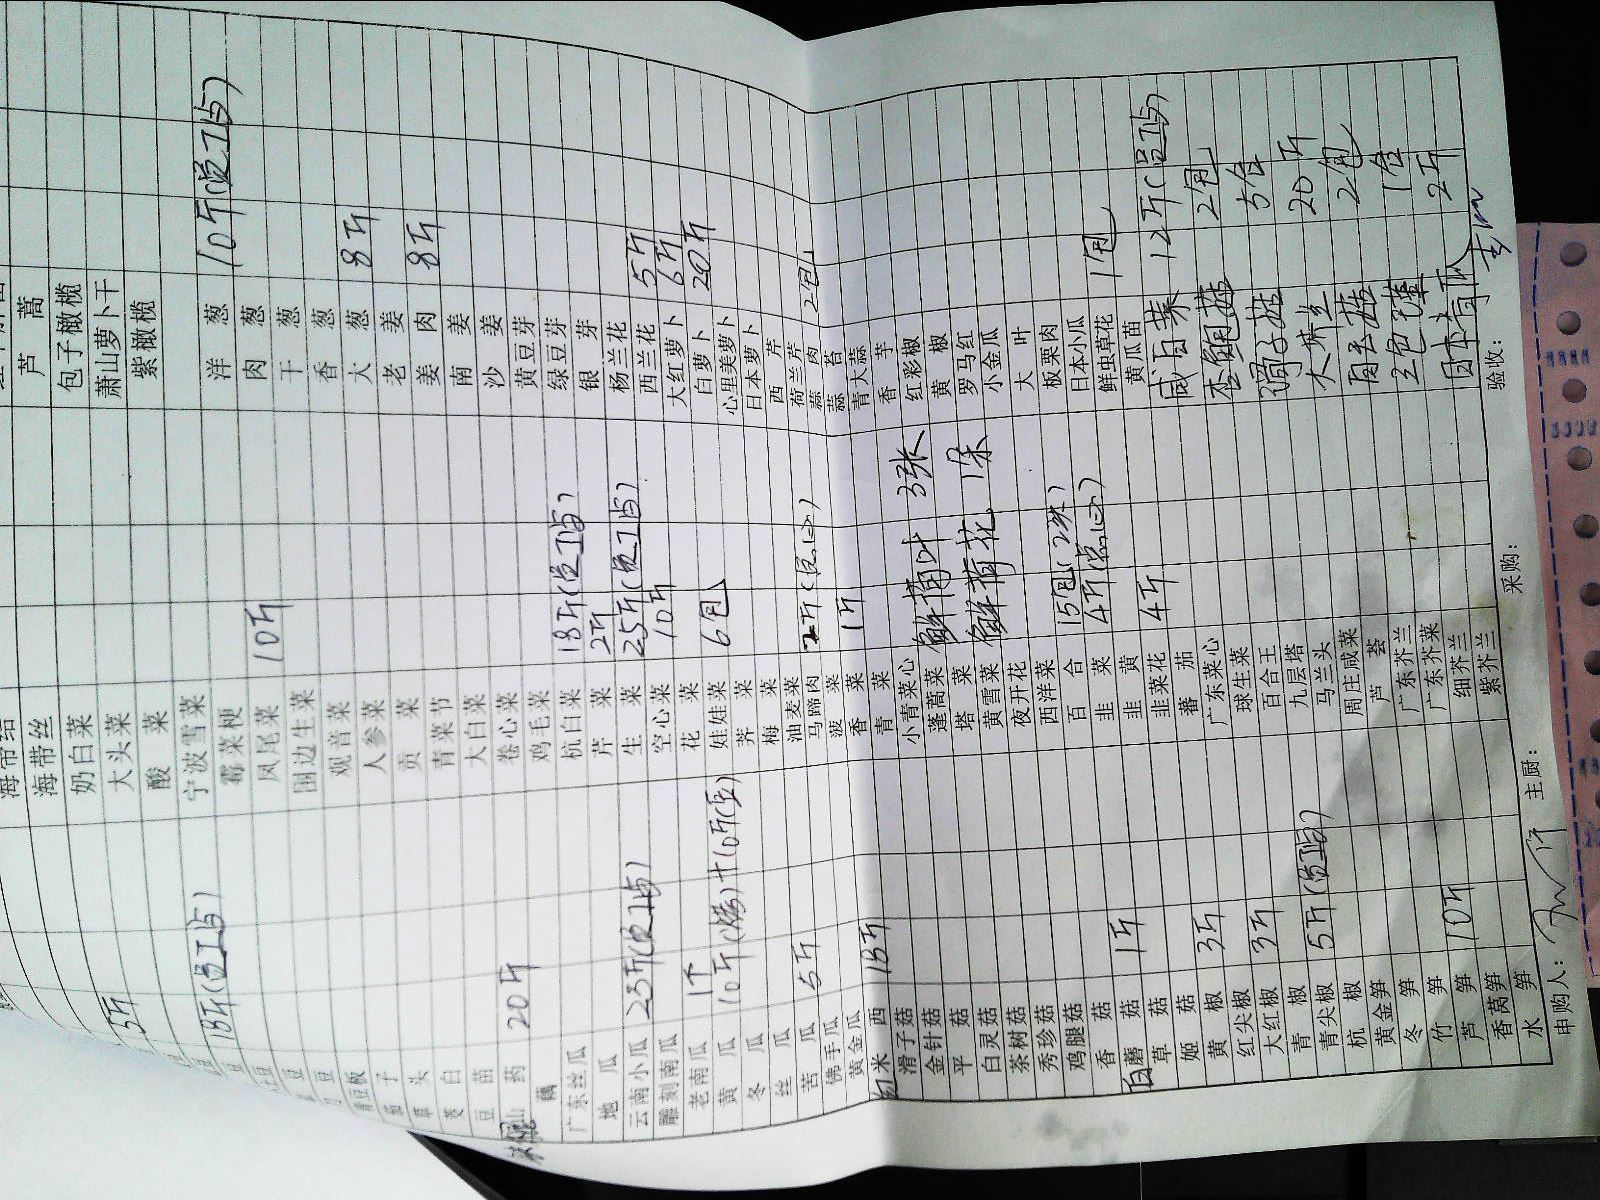 5斤
18斤(员工占)
茭白
豆苗
山药 20斤
藕
广东丝瓜
地瓜
云南小瓜 25斤(员工占)
雕刻南瓜
老南瓜 1个
黄瓜 10斤
冬瓜
丝瓜
苦瓜 5斤
佛手瓜
黄金瓜
红米西 15斤
滑子菇
金针菇
平菇
白灵菇
茶树菇
秀珍菇
鸡腿菇
香菇
白蘑菇 1斤
草菇
姬菇
黄椒 3斤
红尖椒
大红椒 3斤
青椒
青尖椒 5斤(员工占)
杭椒
黄金笋
冬笋
竹笋
芦笋 10斤
香莴笋
水笋
海带结
海带丝
奶白菜
大头菜
酸菜
宁波雪菜
霉菜梗
凤尾菜 10斤
围边生菜
观音菜
人参菜
贡菜
青菜节
大白菜
卷心菜
鸡毛菜
杭白菜 18斤(员工占)
芹菜 2斤
生菜 25斤(员工占)
空心菜 10斤
花菜
娃娃菜 6包
荠菜
梅菜
油麦菜
马蹄肉 2斤
菠菜
香菜 1斤
青菜
小青菜心
蓬蒿菜 鲜荷叶 3张
塔菜
黄雪菜 鲜荷花 1朵
夜开花
西洋菜
百合 15包
韭菜 4斤
韭黄
韭菜花 4斤
番茄
广东菜心
球生菜
百合王
九层塔
马兰头
周庄咸菜
芦荟
广东芥兰
广东芥菜
细芥兰
紫芥兰
芦蒿
包子橄榄
萧山萝卜干
紫橄榄
洋葱 10斤(员工占)
肉葱
干葱
香葱
大葱 8斤
老姜
姜肉 8斤
南姜
沙姜
黄豆芽
绿豆芽
银芽
杨兰花
西兰花 5斤
大红萝卜 6斤
白萝卜 20斤
心里美萝卜
日本萝卜
西芹
荷兰芹
蒜肉 2包
蒜苔
青大蒜
香芋
红彩椒
黄椒
罗马红
小金瓜
大叶
板栗肉
日本小瓜
鲜虫草花 1包
黄瓜苗
咸白菜 12斤(员工占)
杏鲍菇 2包
滑子菇 5包
大葱 20斤
2包
1包
日本青瓜 2斤
申购人： 主厨： 采购： 验收：